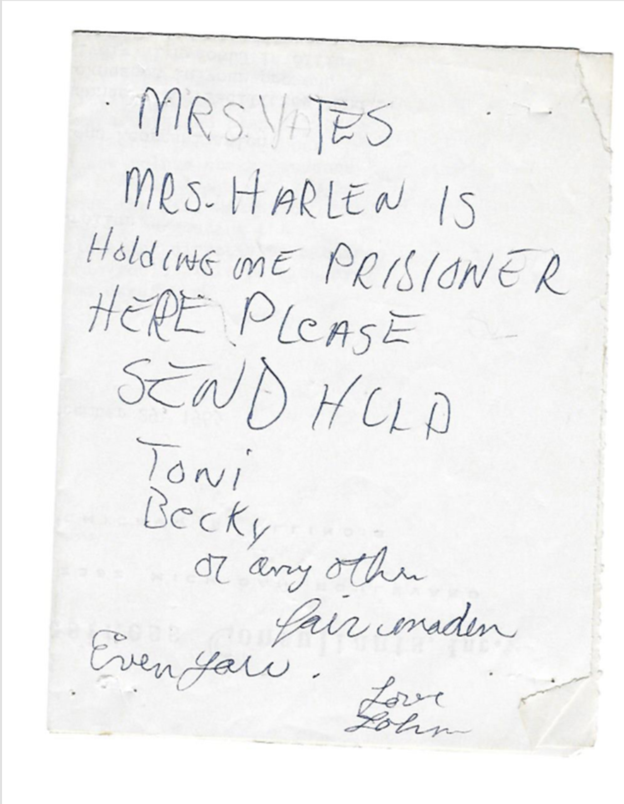 MRS. YATES
MRS. HARLEN IS
HoldING ME PRISIONER
HERE PLEASE
SEND HELP
Toni
Becky
or any other
fair maden
Even you.
Love
John